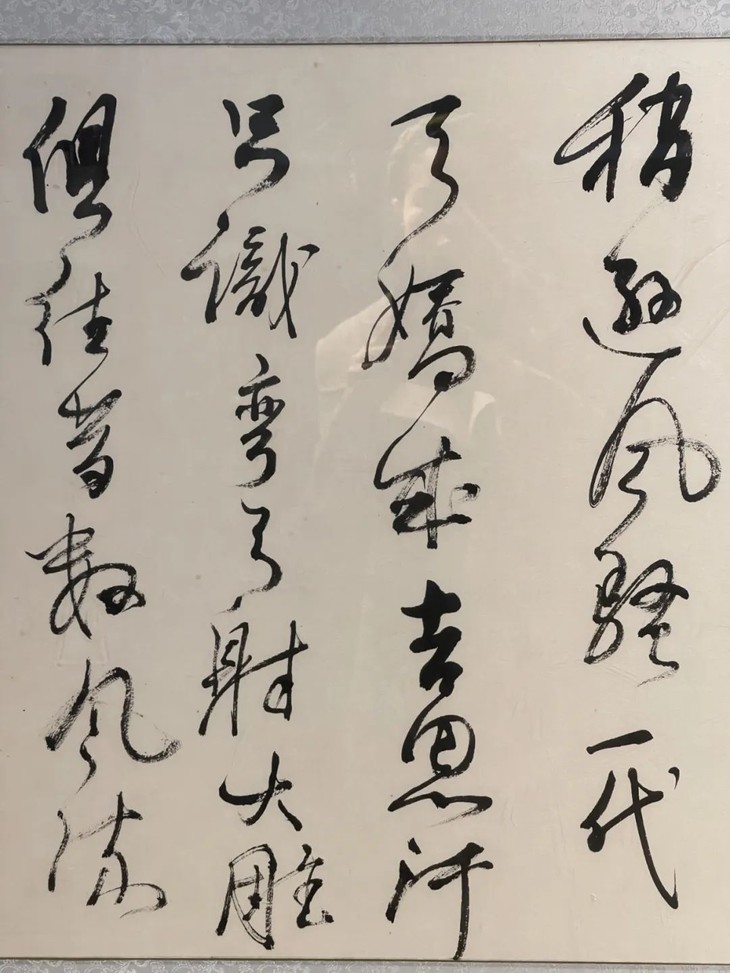 稍遜风騷一代
天嬌成吉思汗
只識彎弓射大雕
俱往昔數风流